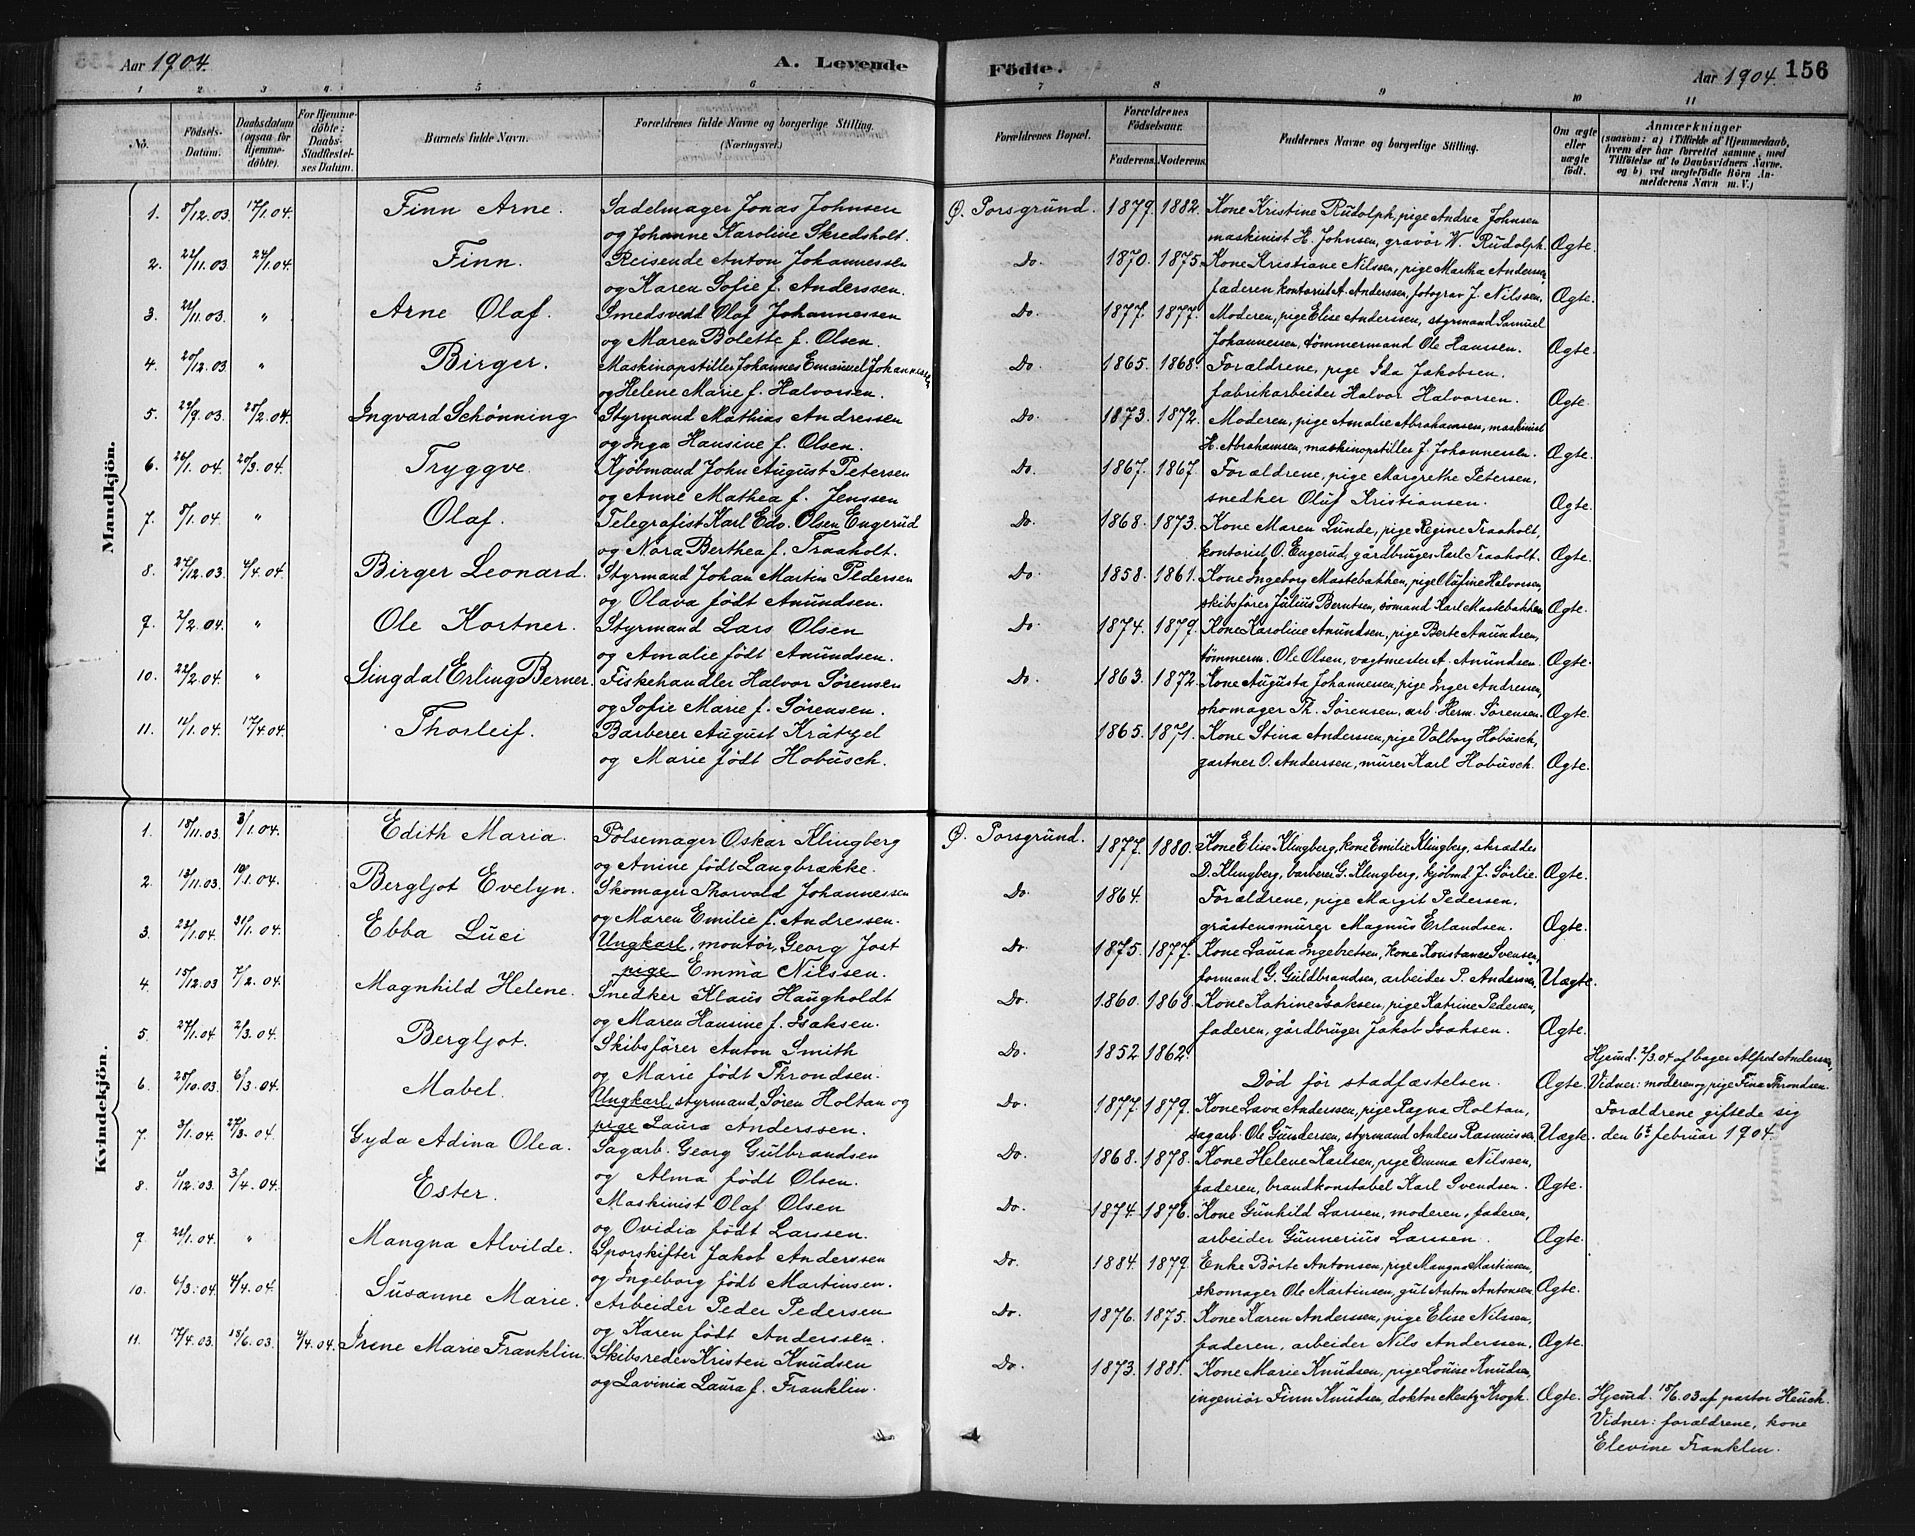 Aar 1904. A. Levende Fødte. Aar 1904. 156
1 2 3 4 5 6 7 8 9 10 11
No. Fødsels-Datum. Daabsdatum (ogsaa for Hjemmedøbte). For Hjemmedøbte: Daabs-Stadfæstelses Datum. Barnets fulde Navn. Forældrenes fulde Navne og borgerlige Stilling. (Næringsvei.) Forældrenes Bopæl. Forældrenes Fødselsaar. Faderens. Moderens. Faddernes Navne og borgerlige Stilling. Om ægte eller uægte født. Anmærkninger (saasom: a) i Tilfælde af Hjemmedaab, hvem der har forrettet samme, med Tilføielse af to Daabsvidners Navne, og b) ved uægtefødte Børn Anmelderens Navn m. V.)
Mandkjøn.
1. 8/12.03. 17/1.04. Finn Arne. Sadelmager Jonas Johnsen Ø. Porsgrund. 1879. 1882. Kone Kristine Rudolph, pige Andrea Johnsen
og Johanne Karoline Skredsholt. maskinist H. Johnsen, gravör W. Rudolph. Ægte.
2. 22/11.03. 24/1.04. Finn. Reisende Anton Johannessen Do. 1870. 1875. Kone Kristiane Nilssen, pige Martha Anderssen,
og Karen Sofie f. Anderssen. faderen kontorist A. Anderssen, fotograv J. Nilssen. Ægte.
3. 21/11.03. " Arne Olaf. Smedsvend Olaf Johannessen Do. 1877. 1877. Moderen, pige Elise Anderssen, styrmand Samuel
og Maren Bolette f. Olsen. Johannessen, tømmermand Ole Hanssen. Ægte.
4. 20/12.03 " Birger. Maskinopstiller Johannes Emanuel Johannessen Do. 1865. 1868. Forældrene, pige Ida Jakobsen.
og Helene Marie f. Halvorsen. fabrikarbeider Halvor Halvorsen. Ægte.
5. 29/9.03. 28/2.04. Ingvard Schönning Styrmand Mathias Andressen Do. 1873. 1872. Moderen, pige Amalie Abrahamsen, maskinist
og Inga Hansine f. Olsen. H. Abrahamsen, maskinopstiller J. Johannessen. Ægte.
6. 26/1.04. 20/3.04. Tryggve. Kjöbmand John August Petersen Do. 1867. 1867. Forældrene, pige Margrethe Petersen,
og Anne Mathea f. Jenssen snedker Oluf Kristiansen. Ægte.
7. 8/1.04. " Olaf. Telegrafist Karl Edv. Olsen Engerud Do. 1868. 1873. Kone Maren Lunde, pige Regine Traaholt,
og Nora Berthea f. Traaholt. kontorist O. Engerud, gårdbruger Karl Traaholt. Ægte.
8. 27/12.03. 4/4.04. Birger Leonard. Styrmand Johan Martin Pedersen Do. 1858. 1861. Kone Ingeborg Mastebakken, pige Olafine Halvorsen,
og Olava født Amundsen. skibsfører Julius Berntsen, sömand Karl Mastebakken Ægte.
9. 2/2.04. " Ole Kortner. Styrmand Lars Olsen Do. 1874. 1879. Kone Karoline Amundsen, pige Berte Amundsen,
og Amalie født Amundsen. tömmerm. Ole Olsen, vagtmester A. Amundsen. Ægte.
10. 22/2.04. " Singdal Erling Berner. Fiskehandler Halvor Sørensen Do. 1863. 1872. Kone Augusta Johannessen, pige Inger Andressen,
og Sofie Marie f. Sørensen. skomager Th. Sørensen, arb. Herm. Sørensen. Ægte.
11. 14/1.04. 17/4.04. Thorleif. Barberer August Krätzel 1865. 1871. Kone Stina Anderssen, pige Valborg Hobusch,
og Marie født Hobusch. gartner O. Anderssen, murer Karl Hobusch. Ægte.
Kvindekjøn.
1. 18/11.03. 3/1.04. Edith Maria. Pølsemager Oskar Klingberg Ø. Porsgrund. 1877. 1880. Kone Elise Klingberg, kone Emilie Klingberg, skrædder
og Anine født Langbrække. D. Klingberg, barberer G. Klingberg, kjøbmd J. Sörlie. Ægte.
2. 13/11.03. 10/1.04. Bergljot Evelyn. Skomager Thorvald Johannessen Do. 1864. Forældrene, pige Margit Pedersen.
og Maren Emilie f. Andressen. gråstensmurer Magnus Erlandsen. Ægte.
3. 22/1.04. 31/1.04. Ebba Luci Ungkarl, montör, Georg Jost Do. 1875. 1877. Kone Laura Ingebretsen, kone Konstance Svensen,
pige Emma Nilssen. formand G. Guldbrandsen, arbeider P. Anderssen, Uægte.
4. 15/12.03 7/2.04. Magnhild Helene. Snedker Klaus Haugholdt Do. 1860. 1868. Kone Katrine Isaksen, pige Katrine Pedersen,
og Maren Hansine f. Isaksen. faderen, gårdbruger Jakob Isaksen. Ægte.
5. 27/1.04 2/3.04. Bergljot. Skibsfører Anton Smith Do. 1852 1862. Hjemd. 2/3.04 af bager Alfred Anderssen,
og Marie født Throndsen. Død før stadfæstelsen. Ægte. Vidner: moderen og pige Fina Throndsen.
6. 28/10.03. 6/3.04. Mabel. Ungkarl, styrmand, Sören Holtan og Do. 1877. 1879. Kone Lava Anderssen, pige Ragna Holtan, Forældrene giftede sig
pige Laura Anderssen. sagarb. Ole Gundersen, styrmand Anders Rasmussen, Uægte. den 6te februar 1904.
7. 3/1.04. 27/3.04. Gyda Adina Olea. Sagarb. Georg Gulbrandsen Do. 1868. 1878. Kone Helene Karlsen, pige Emma Nilssen,
og Alma født Olsen. faderen, brandkonstabel Karl Svendsen. Ægte.
8. 1/12.03. 3/4.04. Ester. Maskinist Olaf Olsen Do. 1874. 1876. Kone Gunhild Larssen, moderen, faderen,
og Ovidia født Larssen. arbeider Gunnerius Larssen. Ægte.
9. 21/1.04. " Mangna Alvilde. Sporskifter Jakob Anderssen Do. 1884. 1879. Enke Börte Antonsen, pige Mangna Martinsen,
og Ingeborg født Martinsen. skomager Ole Martinsen, gut Anton Antonsen Ægte.
10. 6/3.04. 4/4.04. Susanne Marie. Arbeider Peder Pedersen Do. 1876. 1875. Kone Karen Anderssen, pige Elise Nilssen,
og Karen født Anderssen. faderen, arbeider Nils Anderssen, Ægte.
11. 17/4.03. 18/6.03. 4/4.04. Irene Marie Franklin. Skibsreder Kristen Knudsen Do. 1873. 1881. Kone Marie Knudsen, pige Louise Knudsen,
og Lavinia Laura f. Franklin. ingeniør Finn Knudsen, doktor Mentz Krogh. Ægte. Hjemd. 18/6.03 af pastor Heuch.
Vidner: forældrene, kone
Elevine Franklin.